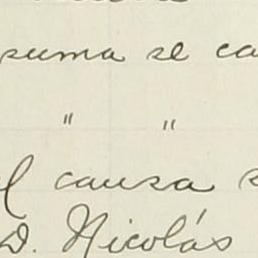 suma se ca
" "
l causa s
D. Nicolás